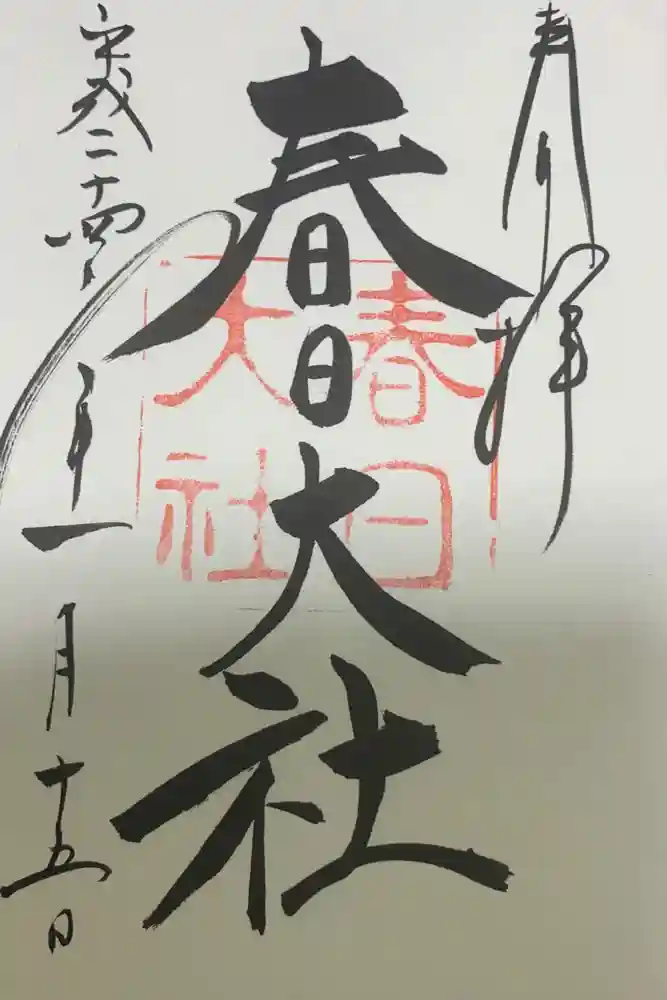 奉拝
春日大社
春日
大社
平成二十四年一月十五日